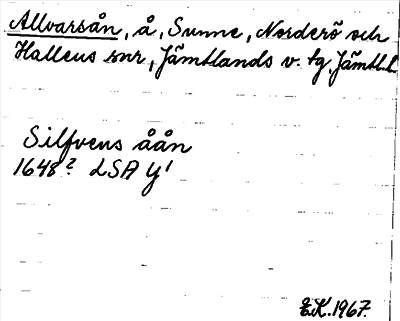 Allvarsån, å, Sunne, Norderö och
Hallens snr, Jämtlands v. tg, Jämtl.l
Silfvens åån
1648? LSA Y1
E.K. 1967.